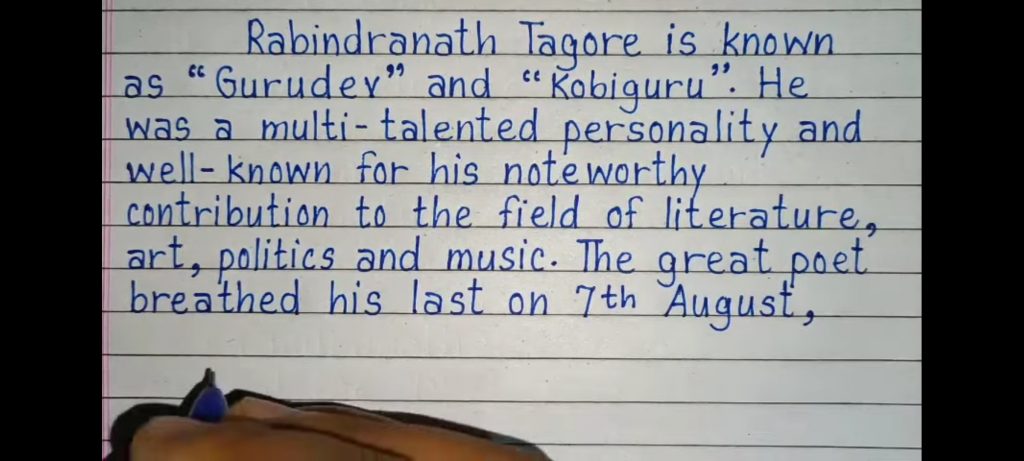 Rabindranath Tagore is known
as “Gurudev” and “Kobiguru”. He
was a multi-talented personality and
well-known for his noteworthy
contribution to the field of literature,
art, politics and music. The great poet
breathed his last on 7th August,